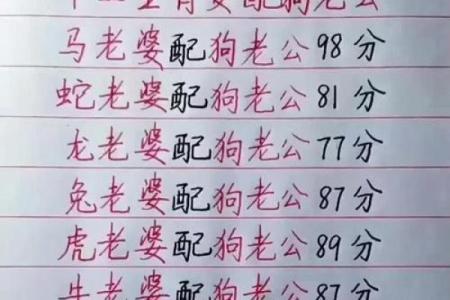 马老婆配狗老公98分
蛇老婆配狗老公81分
龙老婆配狗老公77分
兔老婆配狗老公87分
虎老婆配狗老公89分
牛老婆配狗老公87分